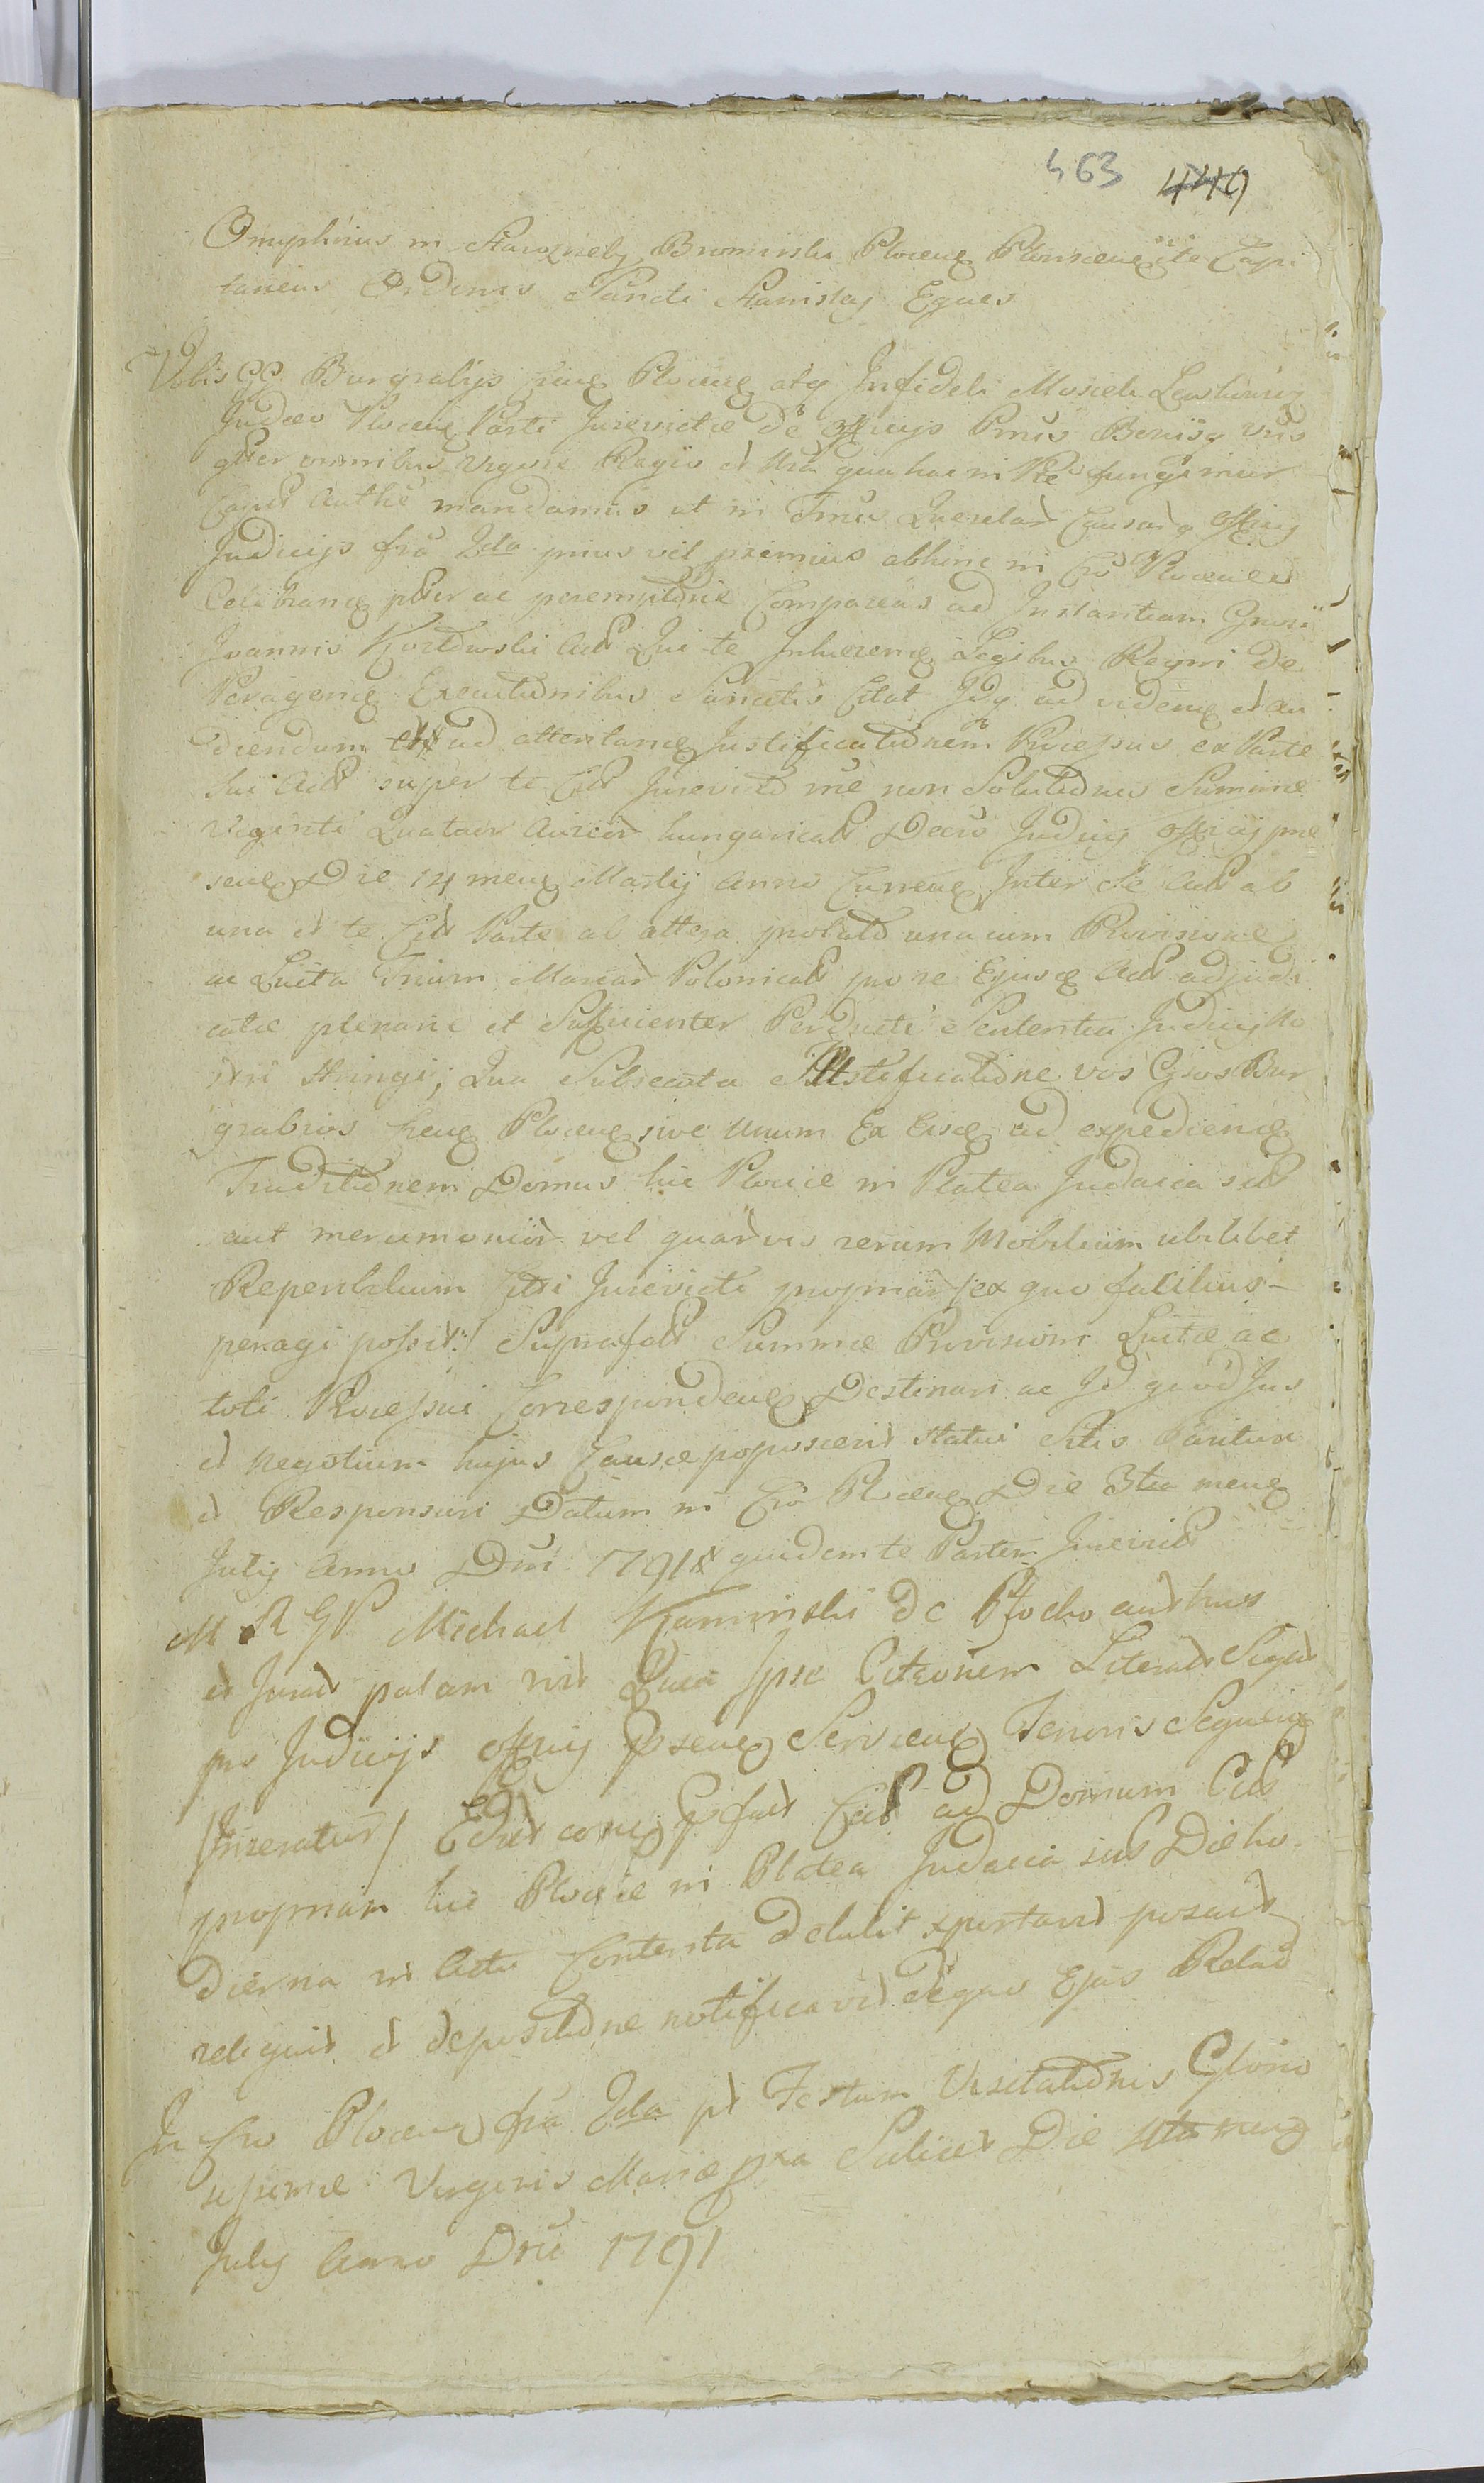 463 449
Onuphrius in Starozreby Bromirski Plocen Plonscen etc Capi
taneus Ordinis Sancti Stanislaj Eques
Vobis GG Burgrabijs Cven Plocen atq Infideli Moseli Leskowicz
Judæo Plocen Parti Jurevictæ de Officijs Bonisq Vris
gnter omnibus vigore Regio et Nrâ qua hac in Pte fungimur
Capit Authe mandamus ut in Tmis Querelar Causarq Officij
Judicijs fria 2da prius vel primius abhinc in Cro Plocen
Celebran pnter ac peremptorie Compareas ad Instantiam Gnosi
Joannis Kozłowski Act Qui te Inhæren Legibus Regni de
Peragen Executionibus Sancitis Citat Idq ad viden et au
diendum et ad attentan Justificationem Processus ex Parte
sui Act super te Cit Jurevict rne non Solutionis Summæ
Viginti Quatuor Aureor hungarical Decreto Judicij Officij præ
sen Die 14 men Martij Anno Curren Inter Se Act ab
una et te Cit Parte ab altera prolato una cum Provisione
ac Luita Trium Marcar Polonical pro re Ejusd Act adjudi
catæ plenarie et Sufficienter Perducti Sententia Judicij No
stri stringi; Qua Subsecuta Justificatione vos Gsos Bur
grabios Cven Plocen sive Unum Ex Eisd ad expedien
Traditionem Domus hic Plociæ in Platea Judaica sit
aut mercimonior vel quarvis rerum Mobilium ubilibet
Reperibilium Citti Jurevicti propriar /:ex quo facilius
peragi possit:/ Suprafat Summæ Provisioni Luitæ ac
toti Processui Corresponden Destinari ac Id quod Jus
et negotium hujus Causæ poposcerit statui Sitis Parituri
et Responsuri Datum in Cro Plocen Die 3tia men
Julij Anno Dni 1791 quidem te Partem Jurevict
M R G P Michael Kamiński de Płocko authus
et Jurat palam rvit Quia Ipse Citaonem Literal Sigil
pro Judicijs Officij Præsen Servien Tenoris Sequen
/Inseratur/ Edit con Præfat Cit ad Domum Cit
propriam hic Plociæ in Platea Judaica sit Die ho
dierna in Actu Contenta detulit xportavit posuit
reliquit et depositione notificavit Sequo Ejus Relao
In Cro Plocen fria 2da pt Festum Visitationis Glorio
sissimæ Virginis Mariæ pxa Scilicet Die 4ta men
Julij Anno Dni 1791